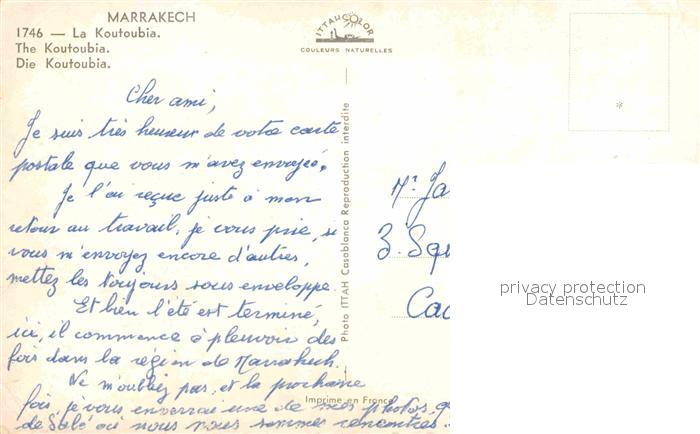 MARRAKECH
1746 — La Koutoubia.
The Koutoubia.
Die Koutoubia.
ITTAHCOLOR
COULEURS NATURELLES
Cher ami,
Je suis très heureux de votre carte
postale que vous m'avez envoyée,
Je l'ai reçue juste à mon
retour au travail, je vous prie, si
vous m'envoyez encore d'autres,
mettez les toujours sous enveloppe.
Et bien l'été est terminé,
ici, il commence à pleuvoir des
fois dans la région de Marrakech.
Ne m'oubliez pas, et la prochaine
fois, je vous enverrai une de mes photos,
de Salé où nous nous sommes rencontrés.
Photo ITTAH Casablanca Reproduction interdite
Imprimé en France
Mr Ja
3. Squ
Cac
privacy protection
Datenschutz